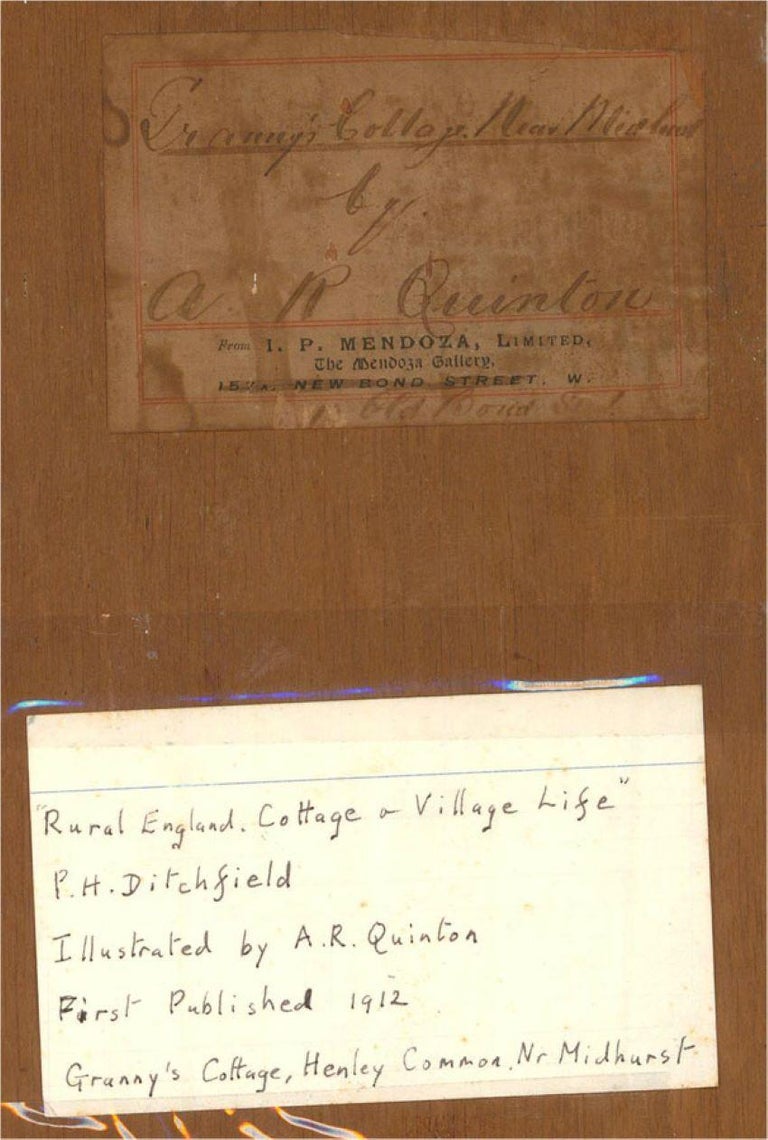 Granny's Cottage. Near Midhurst
by
A R Quinton
From I. P. MENDOZA, LIMITED,
The Mendoza Gallery,
NEW BOND STREET. W.
Old Bond
"Rural England. Cottage & Village Life"
P.H. Ditchfield
Illustrated by A.R. Quinton
First Published 1912
Granny's Cottage, Henley Common, Nr Midhurst